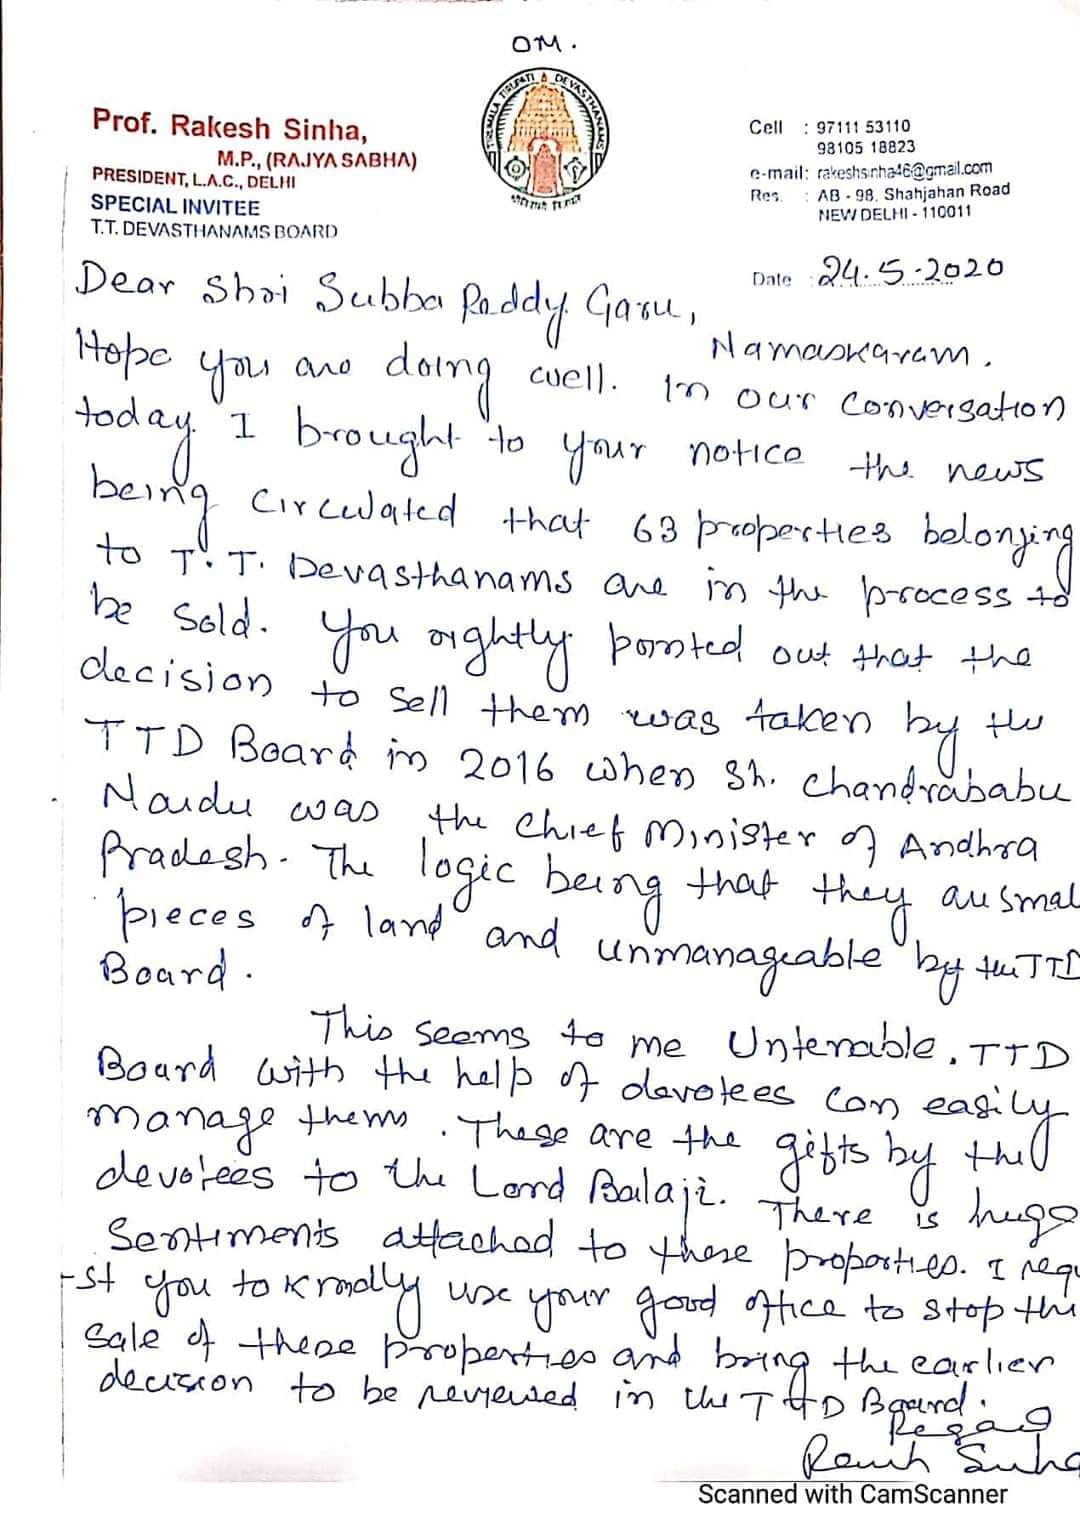 OM.
TIRUMALA TIRUPATI DEVASTHANAMS
Prof. Rakesh Sinha,
M.P., (RAJYA SABHA)
PRESIDENT, L.A.C., DELHI
SPECIAL INVITEE
T.T. DEVASTHANAMS BOARD
Cell : 97111 53110
98105 18823
e-mail: rakeshsinha46@gmail.com
Res. : AB - 98, Shahjahan Road
NEW DELHI - 110011
Date : 24.5.2020
Dear Shri Subba Reddy Garu,
Namaskaram.
Hope you are doing well. In our conversation
today I brought to your notice the news
being circulated that 63 properties belonging
to T.T. Devasthanams are in the process to
be sold. You rightly pointed out that the
decision to sell them was taken by the
TTD Board in 2016 when Sh. Chandrababu
Naidu was the Chief Minister of Andhra
Pradesh. The logic being that they are smal
pieces of land and unmanageable by the TTD
Board.
This seems to me Untenable. TTD
Board with the help of devotees can easily
manage them. These are the gifts by the
devotees to the Lord Balaji. There is huge
Sentiments attached to these properties. I requ
-st you to kindly use your good office to stop the
sale of these properties and bring the earlier
decision to be reviewed in the TTD Board.
Regards
Rakesh Sinha
Scanned with CamScanner